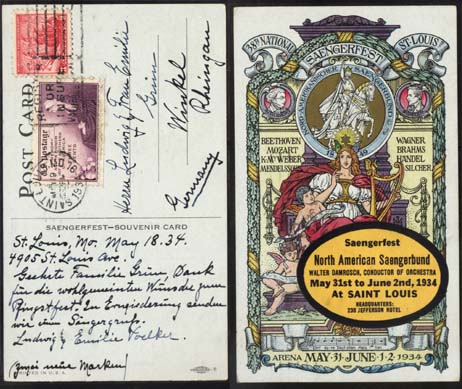 POST CARD
SAINT LOUIS
U.S. Postage
Herrn Ludwig & Frau Emilie
Grün
Winkel
Rheingau
Germany
SAENGERFEST—SOUVENIR CARD
St. Louis, Mo. May 18. 34.
4905 St. Louis Ave.
Geehrte Familie Grün, Dank
für die wohlgemeinten Wünsche zum
Pfingstfest. Zu Erwiederung senden
wir den Sängergruß.
Ludwig & Emilie Voelker.
(zwei neue Marken)
PRINTED IN U.S.A.
38th NATIONAL SAENGERFEST ST. LOUIS
NORD-AMERIKANISCHER SAENGERBUND
BEETHOVEN
MOZART
K.M.V. WEBER
MENDELSSOHN
WAGNER
BRAHMS
HANDEL
SILCHER
Saengerfest
North American Saengerbund
WALTER DAMROSCH, CONDUCTOR OF ORCHESTRA
May 31st to June 2nd, 1934
At SAINT LOUIS
HEADQUARTERS:
238 JEFFERSON HOTEL
ARENA MAY·31·JUNE·1·2·1934